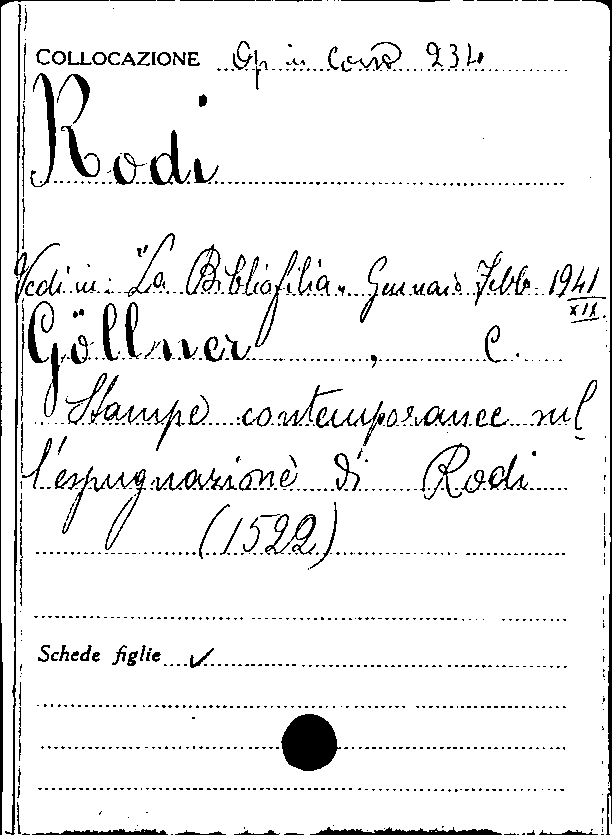 COLLOCAZIONE Op in Corso 234
Rodi
Vedi in: "La Bibliofilia" Gennaio Febb. 1941
XIX.
Göllner, C.
Stampe contemporanee sul
l'espugnazione di Rodi
(1522)
Schede figlie ✓